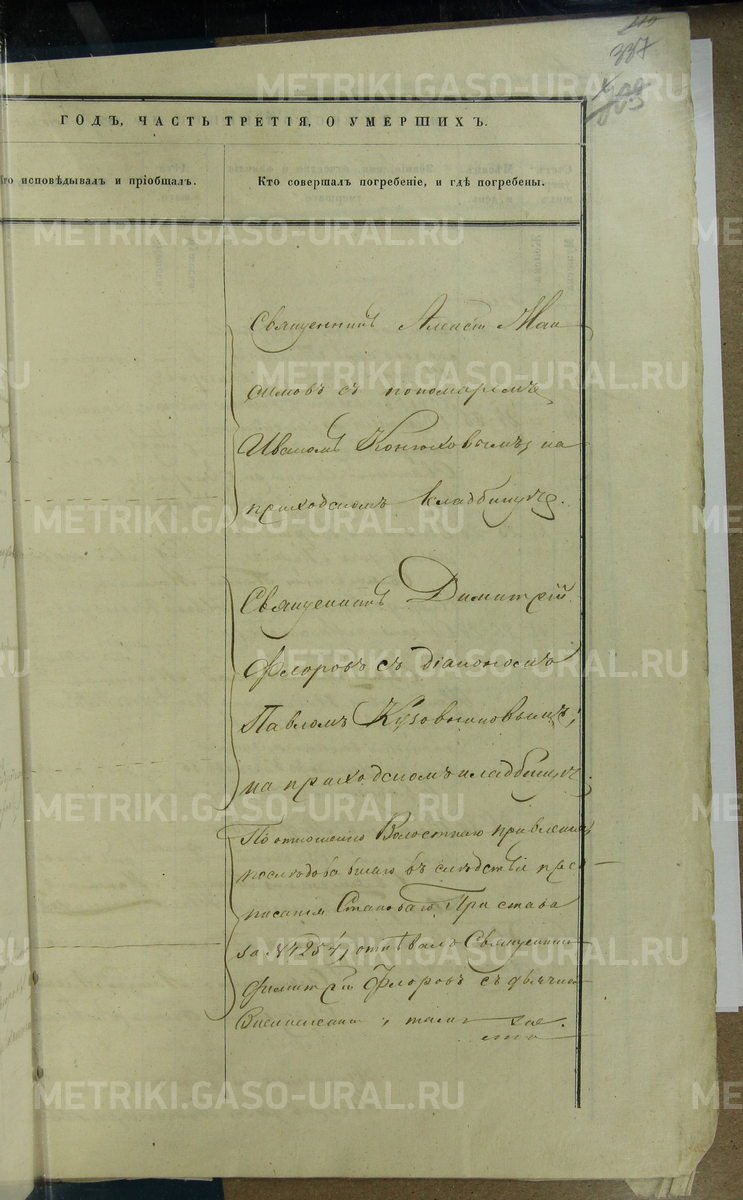 337
METRIKI.GASO-URAL.RU
ГОДЪ, ЧАСТЬ ТРЕТІЯ, О УМЕРШИХЪ.
то исповѣдывалъ и пріобщалъ.
Кто совершалъ погребеніе, и гдѣ погребены.
Священникъ Алексѣй Мак
симовъ съ пономаремъ
Иваномъ Конюховымъ, на
приходскомъ кладбищѣ.
Священникъ Димитрій
Флоровъ съ діакономъ
Павломъ Кузовниковымъ,
на приходскомъ кладбищѣ.
По отношенію Волостнаго правленія
послѣдовавшаго въ слѣдствіи пред
писанія Становаго Пристава
за № 4254, отпѣвалъ Священникъ
Димитрій Флоровъ съ дьячкомъ
тамъ же.